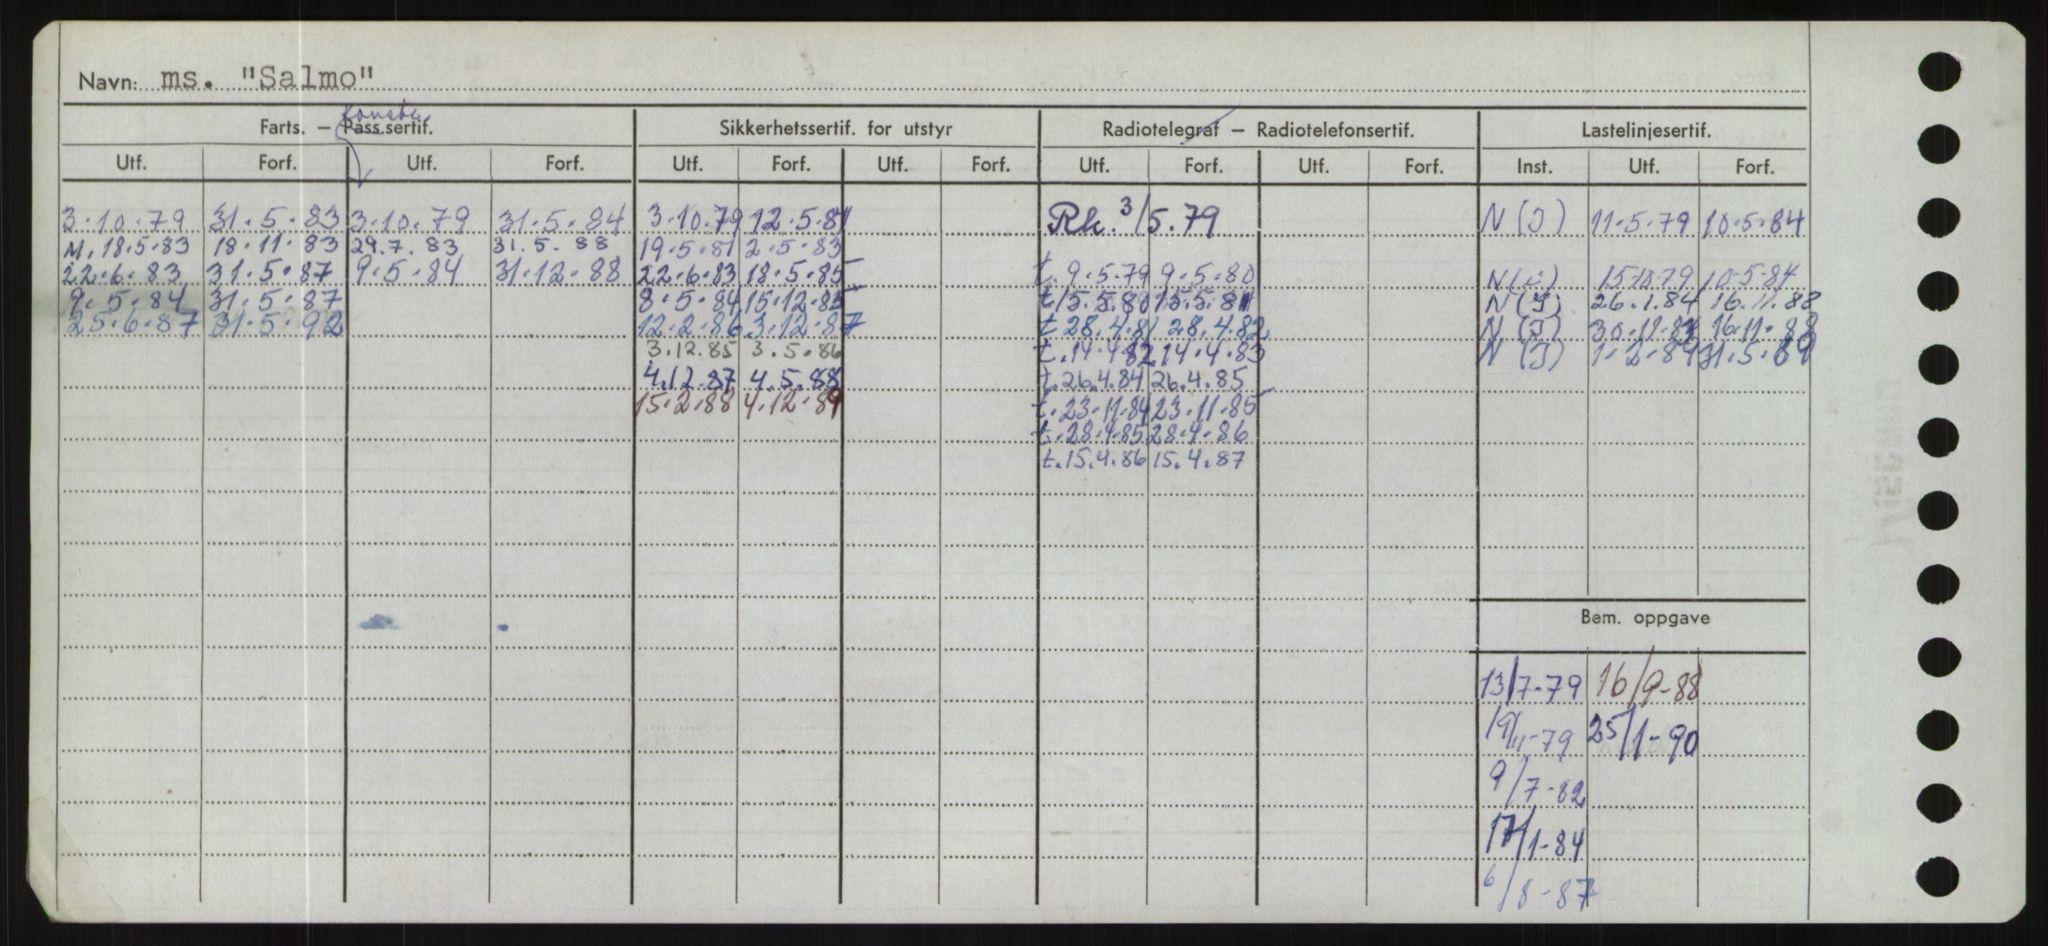 Navn: ms. "Salmo"
Farts. — Pass.sertif. Sikkerhetssertif. for utstyr Radiotelegraf — Radiotelefonsertif. Lastelinjesertif.
Utf. Forf. Utf. Forf. Utf. Forf. Utf. Forf. Utf. Forf. Utf. Forf. Inst. Utf. Forf.
3.10.79 31.5.83 3.10.79 31.5.84 3.10.79 12.5.81 Rk. 3/5.79 N(I) 11.5.79 10.5.84
M. 18.5.83 18.11.83 29.7.83 31.5.88 19.5.81 2.5.83
22.6.83 31.5.87 9.5.84 31.12.88 22.6.83 18.5.85 t. 9.5.79 9.5.80 N(I) 15.10.79 10.5.84
9.5.84 31.5.87 8.5.84 15.12.85 t. 15.5.80 15.5.81 N(I) 26.1.84 16.11.88
25.6.87 31.5.92 12.2.86 3.12.87 t. 28.4.81 28.4.82 N(I) 30.11.83 16.11.88
3.12.85 3.5.86 t. 14.4.82 14.4.83 N(I) 1.2.89 31.5.89
4.12.87 4.5.88 t. 26.4.84 26.4.85
15.2.88 4.12.89 t. 23.11.84 23.11.85
t. 28.4.85 28.4.86
t. 15.4.86 15.4.87
Bem. oppgave
13/7-79 16/9-88
19/11-79 25/1-90
9/7-82
17/1-84
6/8-87